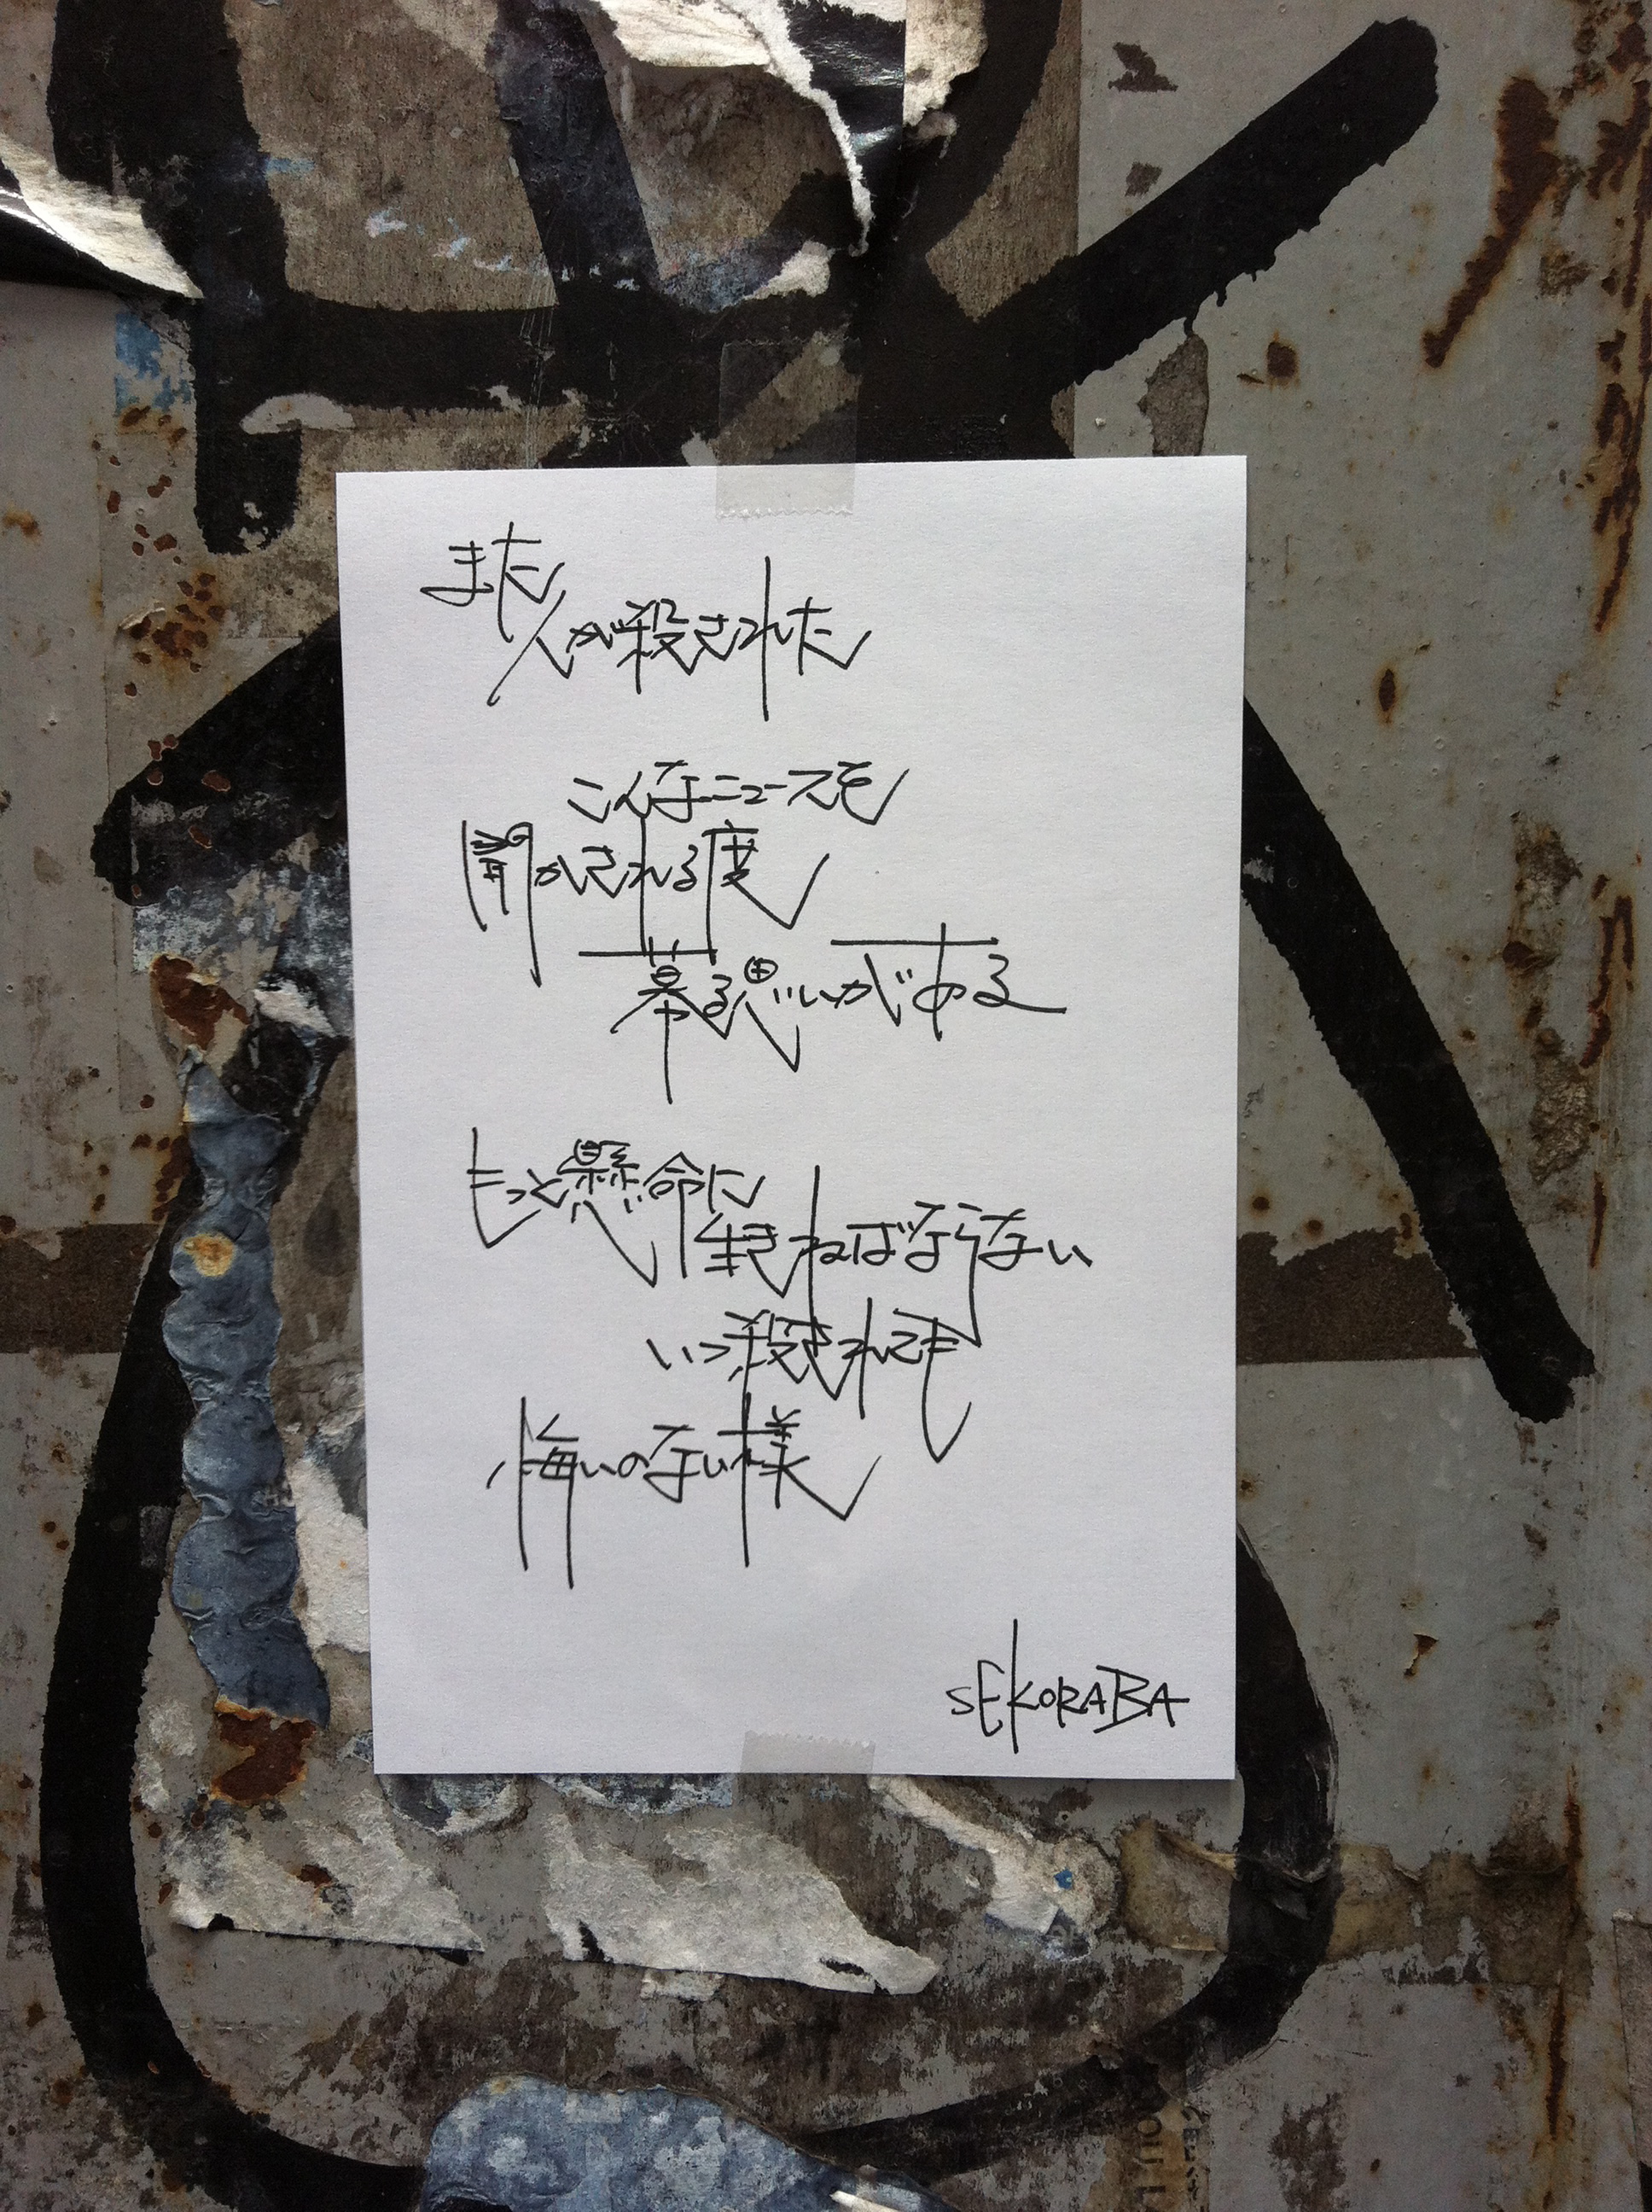 また
人が殺された
こんなニュースを
聞かされる度
募る思いがある
もっと懸命に
生きねばならない
いつ殺されても
悔いのない様
SEKORABA